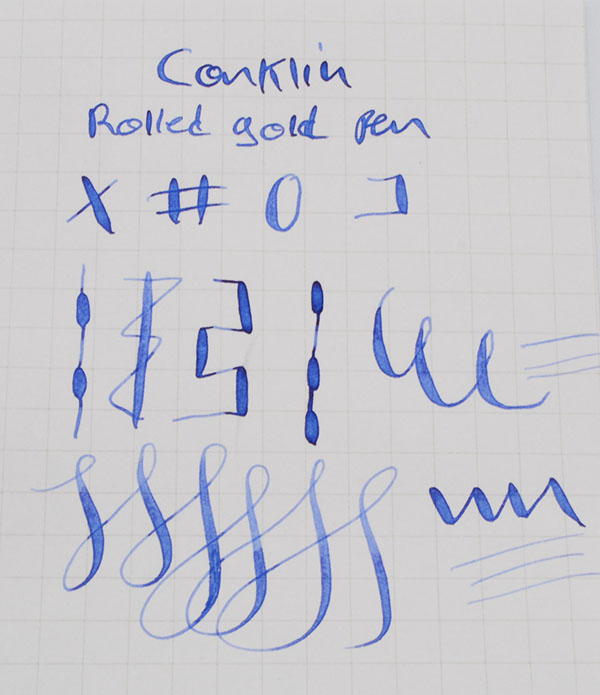 Conklin
Rolled gold pen
X # 0